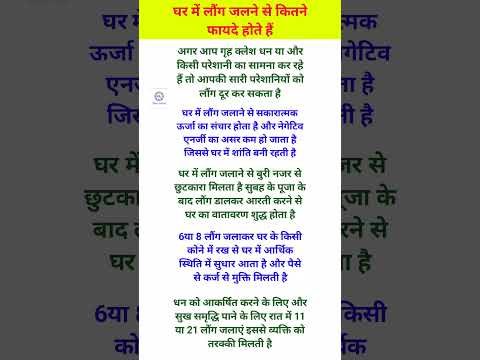 घर में लौंग जलने से कितने
फायदे होते हैं
अगर आप गृह क्लेश धन या और
किसी परेशानी का सामना कर रहे
हैं तो आपकी सारी परेशानियों को
लौंग दूर कर सकता है
घर में लौंग जलाने से सकारात्मक
ऊर्जा का संचार होता है और नेगेटिव
एनर्जी का असर कम हो जाता है
जिससे घर में शांति बनी रहती है
घर में लौंग जलाने से बुरी नजर से
छुटकारा मिलता है सुबह के पूजा के
बाद लौंग डालकर आरती करने से
घर का वातावरण शुद्ध होता है
6या 8 लौंग जलाकर घर के किसी
कोने में रख से घर में आर्थिक
स्थिति में सुधार आता है और पैसे
से कर्ज से मुक्ति मिलती है
धन को आकर्षित करने के लिए और
सुख समृद्धि पाने के लिए रात में 11
या 21 लौंग जलाएं इससे व्यक्ति को
तरक्की मिलती है